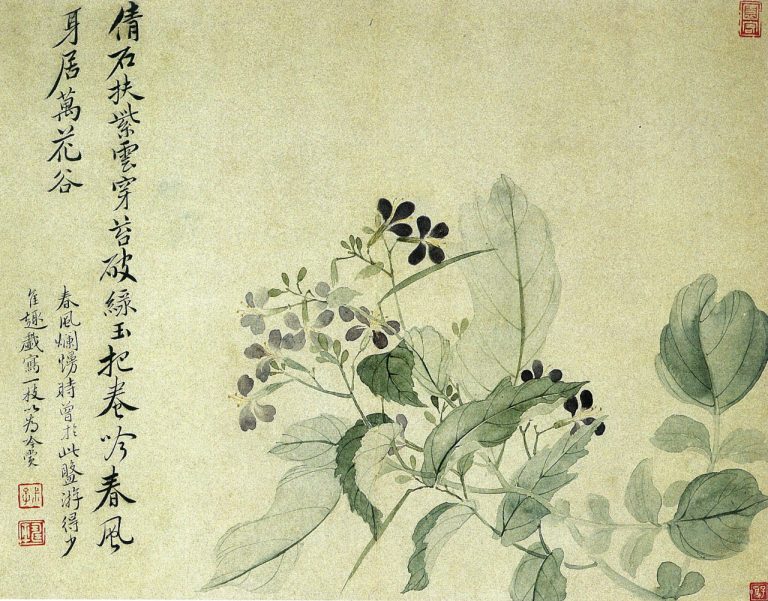 倩石扶紫雲穿苔破綠玉把卷吟春風
身居萬花谷
春風爛慢時曾於此盤游得少
佳趣戲寫一枝以為吟賞